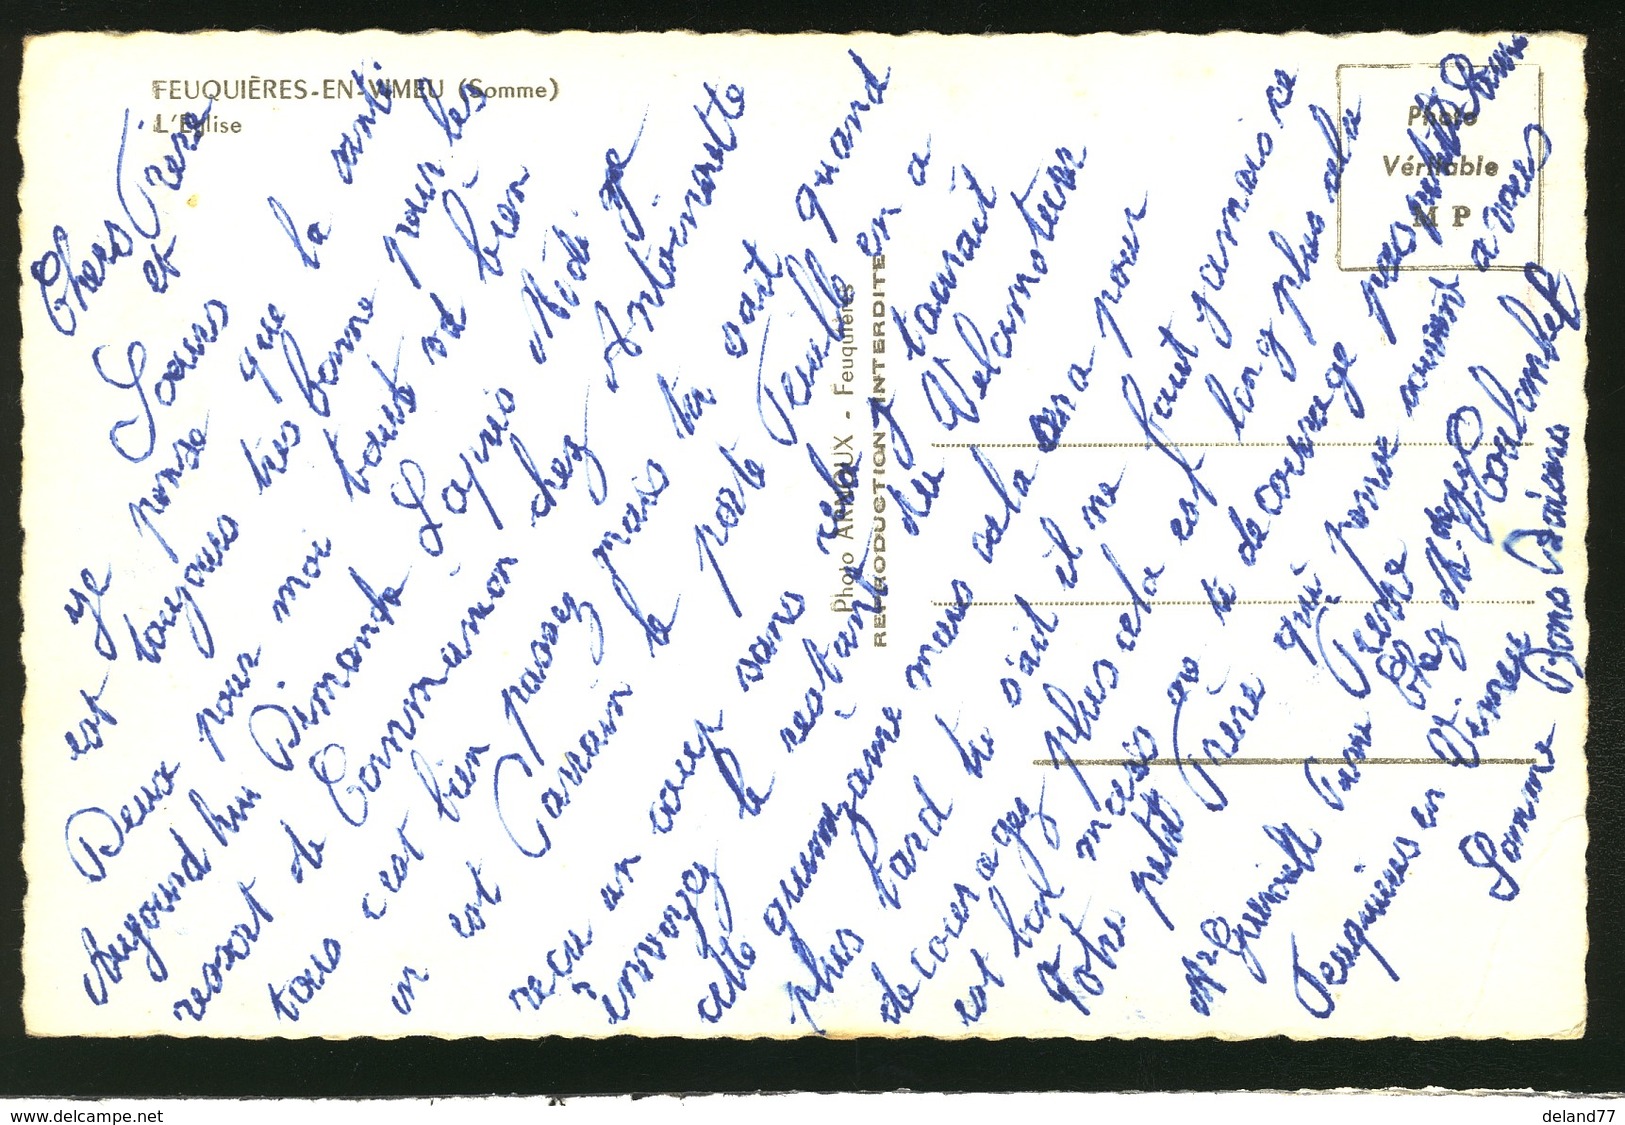 FEUQUIÈRES-EN-VIMEU (Somme)
L'Église
Photo Véritable
M P
Photo ARNOUX - Feuquières
REPRODUCTION INTERDITE
Chers Frere
et
Soeurs
je pense que la santé
est toujours très bonne pour les
Deux pour moi tout va bien
Aujourd hui Dimanche Laprès Midi je
ressort de Communion chez Antoinette
tous c'est bien passez mais tu sait
on est Parrain le porte Feuille quand
reçu un coup sans cela en a
envoyez le restant du j'aurait
cette quinzaine Velomoteur
mais cela sera pour
plus tard tu sait il ne faut jamais ce
decourager plus cela est long plus cela
est bon mais ne te decourage pas petite Soeur
Votre petit Frère qui pense souvent a vous
Mr Pierre
Chez Mr
Feuquieres en Vimeux
Somme Bons Baisers
deland77